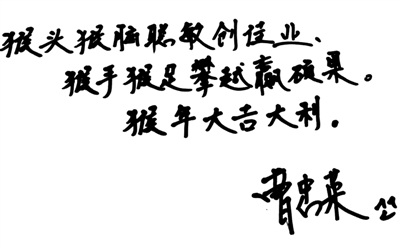 猴头猴脑聪敏创佳业、
猴手猴足攀越赢硕果。
猴年大吉大利。
曹忠英